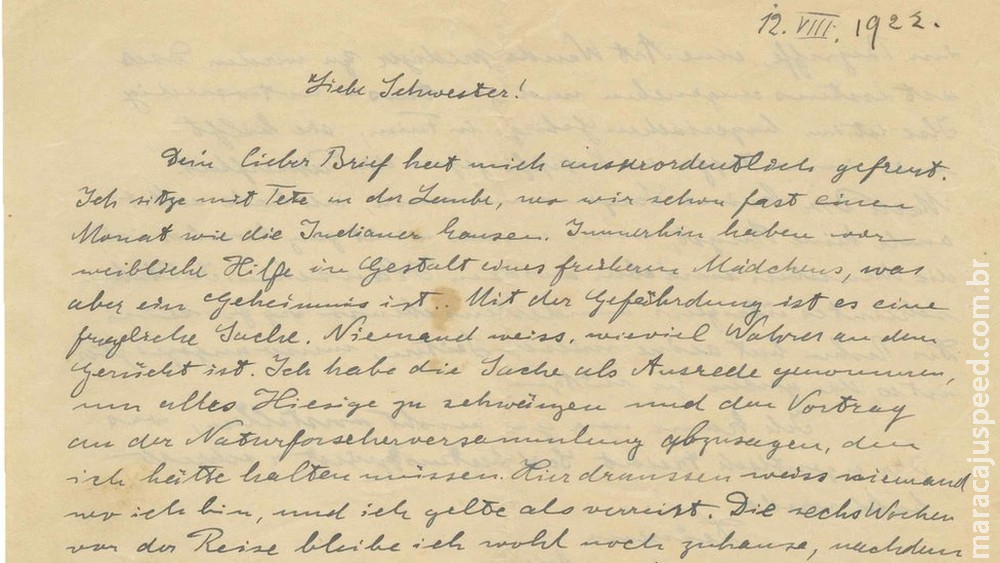 12. VIII. 1922.
Liebe Schwester!
Dein lieber Brief hat mich ausserordentlich gefreut.
Ich sitze mit Tete in der Laube, wo wir schon fast einen
Monat wie die Indianer hausen. Immerhin haben wir
weibliche Hilfe in Gestalt eines früheren Mädchens, was
aber ein Geheimnis ist. Mit der Gefährdung ist es eine
fragliche Sache. Niemand weiss, wieviel Wahres an dem
Gerücht ist. Ich habe die Sache als Ausrede genommen,
um alles Hiesige zu schwänzen und den Vortrag
an der Naturforscherversammlung abzusagen, den
ich hätte halten müssen. Hier draussen weiss niemand
wo ich bin, und ich gelte als verreist. Die sechs Wochen
vor der Reise bleibe ich wohl noch zuhause, nachdem
maracajuspeed.com.br